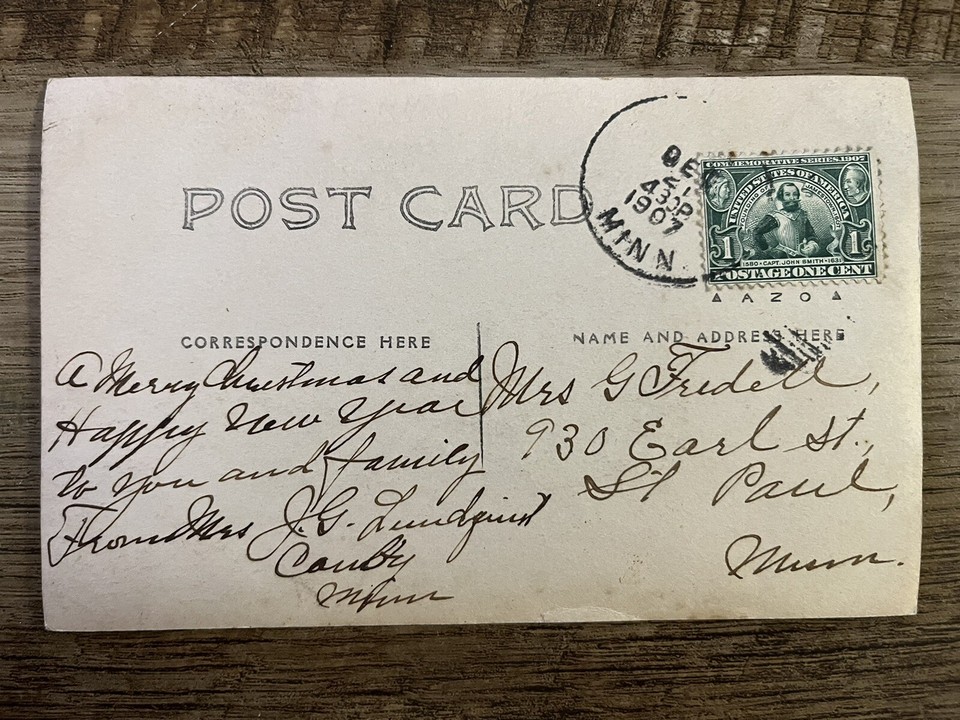 POST CARD
DEC
430P
1907
MINN
COMMEMORATIVE SERIES 1907
UNITED STATES OF AMERICA
1 1
1580 · CAPT. JOHN SMITH · 1631
POSTAGE ONE CENT
AZO
CORRESPONDENCE HERE
NAME AND ADDRESS HERE
A Merry Christmas and
Happy New Year
to you and family
From Mrs J. G. Lundquist
Canby
Minn
Mrs G Fredell,
930 Earl St.,
St Paul,
Minn.